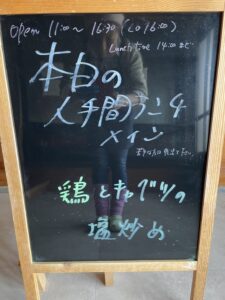 open 11:00～16:30 (Lo 16:00)
Lunch time 14:00まで
本日の
人手間ランチ
メイン
鶏とキャベツの
塩炒め